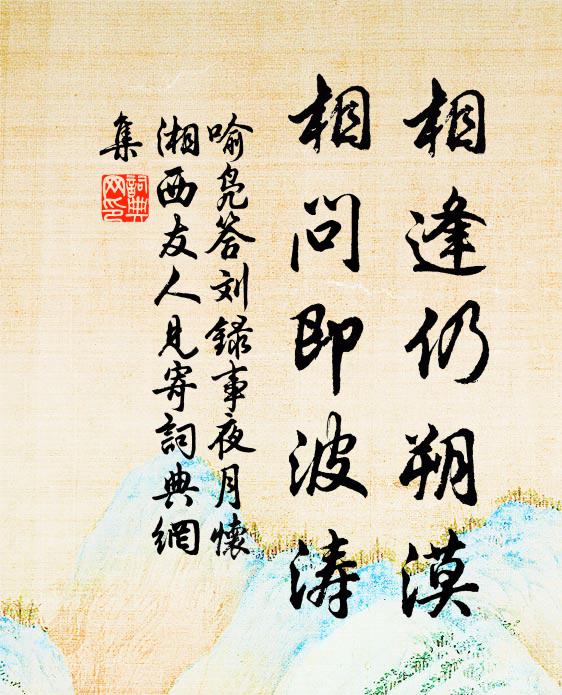 相逢仍朔漠
相问即波涛
喻凫答刘録事夜月懷
湘西友人見寄詞典網
集
詞典
网印